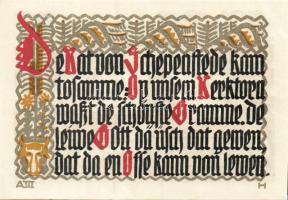 De Rat von Schepenstede kam
tosamme: Op unsem Kerktoren
waßt de schönste Gramme. de
leiwe Gott da nich dat gewen,
dat da en Osse kann von lewen.
A III H